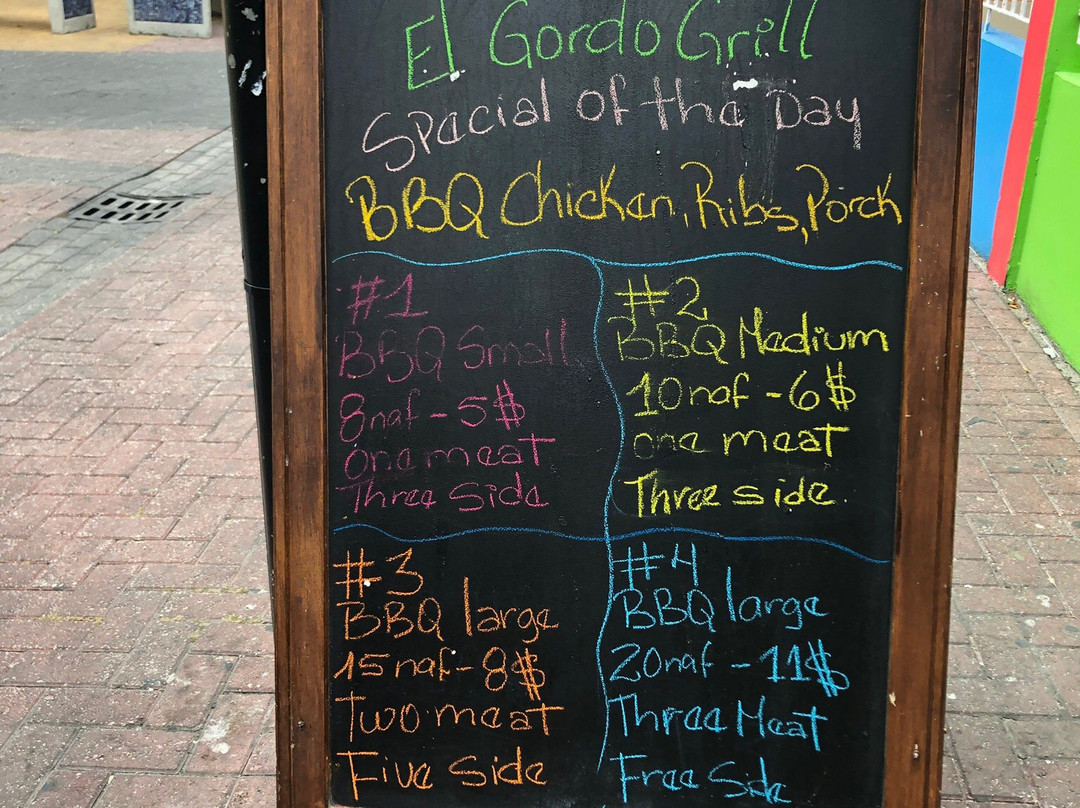 El Gordo Grill
Special of the Day
BBQ Chicken, Ribs, Porck
#1
BBQ Small
8naf - 5$
One meat
Three Side
#2
BBQ Medium
10naf - 6$
one meat
Three side.
#3
BBQ large
15naf - 8$
Two meat
Five Side
#4
BBQ large
20naf - 11$
Three Meat
Free Side